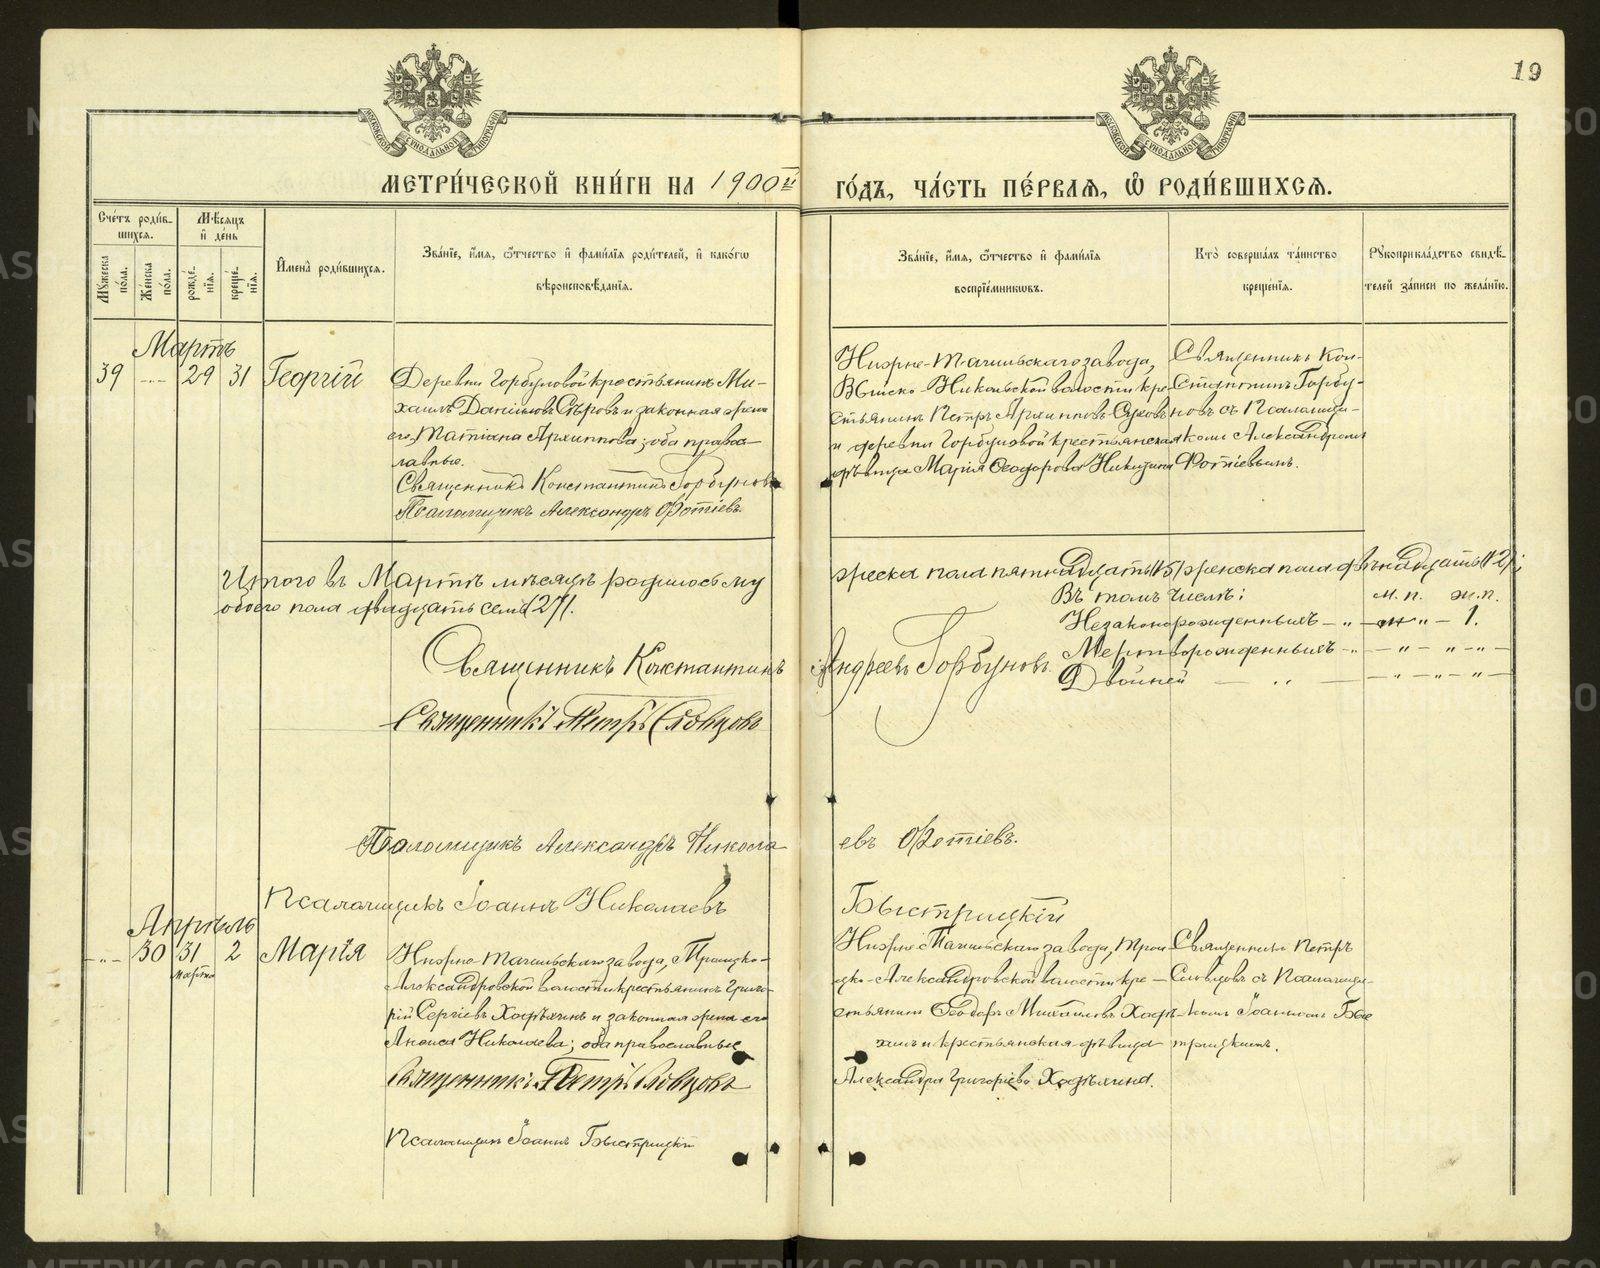 19
МОСКОВСКОЙ СѴНОДАЛЬНОЙ ТИПОГРАФІИ
МОСКОВСКОЙ СѴНОДАЛЬНОЙ ТИПОГРАФІИ
МЕТРИ́ЧЕСКОЙ КНИ́ГИ НА 1900й ГО́ДЪ, ЧА́СТЬ ПЕ́РВАЯ, Ѡ҆ РОДИ́ВШИХСЯ.
Сче́тъ роди́в-
шихся.
Мѣ́сяцъ
и҆ де́нь
Мꙋ́жеска по́ла.
Же́нска по́ла.
рожде́-нїя.
креще́-нїя.
И҆мена̀ роди́вшихся.
Зва́нїе, и҆́мя, ѻ҆́тчество и҆ фами́лїя роди́телей, и҆ како́гѡ
вѣроисповѣ́данїя.
Зва́нїе, и҆́мя, ѻ҆́тчество и҆ фами́лїя
воспрїе́мникѡвъ.
Кто̀ соверша́лъ та́инство
креще́нїя.
Рꙋкоприкла́дство свидѣ́-
телей за́писи по жела́нїю.
Мартъ
39 — 29 31 Георгій
Деревни Горбуновой крестьянинъ Ми-
хаилъ Даніиловъ Сѣровъ и законная жена
его Татіана Архиппова; оба право-
лавные.
Священникъ Константинъ Горбуновъ
Псаломщикъ Александръ Фотіевъ.
Нижне-Тагильскаго завода,
Выйско-Никольской волости кре-
стьянинъ Петръ Архипповъ Суховъ
и деревни Горбуновой крестьянская
дѣвица Марія Ѳеодорова Никитина
Священникъ Кон-
стантинъ Горбу-
новъ съ Псаломщи-
комъ Александромъ
Фотіевымъ.
Итого въ Мартѣ мѣсяцѣ родилось му жеска пола пятнадцать (15) женска пола двѣнадцать (12);
обоего пола двадцать семь (27).
Въ томъ числѣ: м. п. ж. п.
Незаконорожденныхъ — „ — „ — 1.
Мертворожденныхъ — „ — „ — „ —
Двойней — „ — „ — „ — „ —
Священникъ Константинъ Андреевъ Горбуновъ
Священникъ Петръ Словцовъ
Псаломщикъ Александръ Никола евъ Фотіевъ.
Псаломщикъ Іоаннъ Николаевъ Быстрицкій
Апрѣль
— „ — 30 31 2 Марія
марта
Нижне-Тагильскаго завода, Троицко-
Александровской волости крестьянинъ Григо-
рій Сергіевъ Хафѣхинъ и законная жена его
Анисія Николаева; оба православные
Священникъ Петръ Словцовъ
Псаломщикъ Іоаннъ Быстрицкій
Нижне-Тагильскаго завода, Трои
цко-Александровской волости кре-
стьянинъ Ѳеодоръ Михаиловъ
и крестьянская дѣвица
Александра Григоріева
Священникъ Петръ
Словцовъ съ Псаломщи-
комъ Іоанномъ Бы
трицкимъ.
METRIKI.GASO-URAL.RU